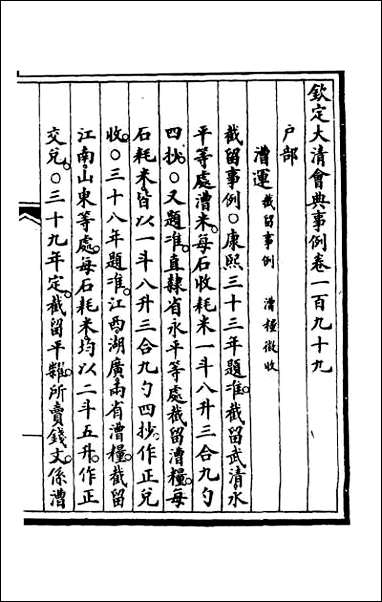 欽定大清會典事例卷一百九十九
戶部
漕運 截留事例 漕糧徵收
截留事例○康熙三十三年題准截留武清永
平等處漕米每石收耗米一斗八升三合九勺
四抄○又題准直隸省永平等處截留漕糧每
石耗米皆以一斗八升三合九勺四抄作正兌
收○三十八年題准江西湖廣兩省漕糧截留
江南山東等處每石耗米均以二斗五升作正
交兌○三十九年定截留平糶所賣錢文係漕